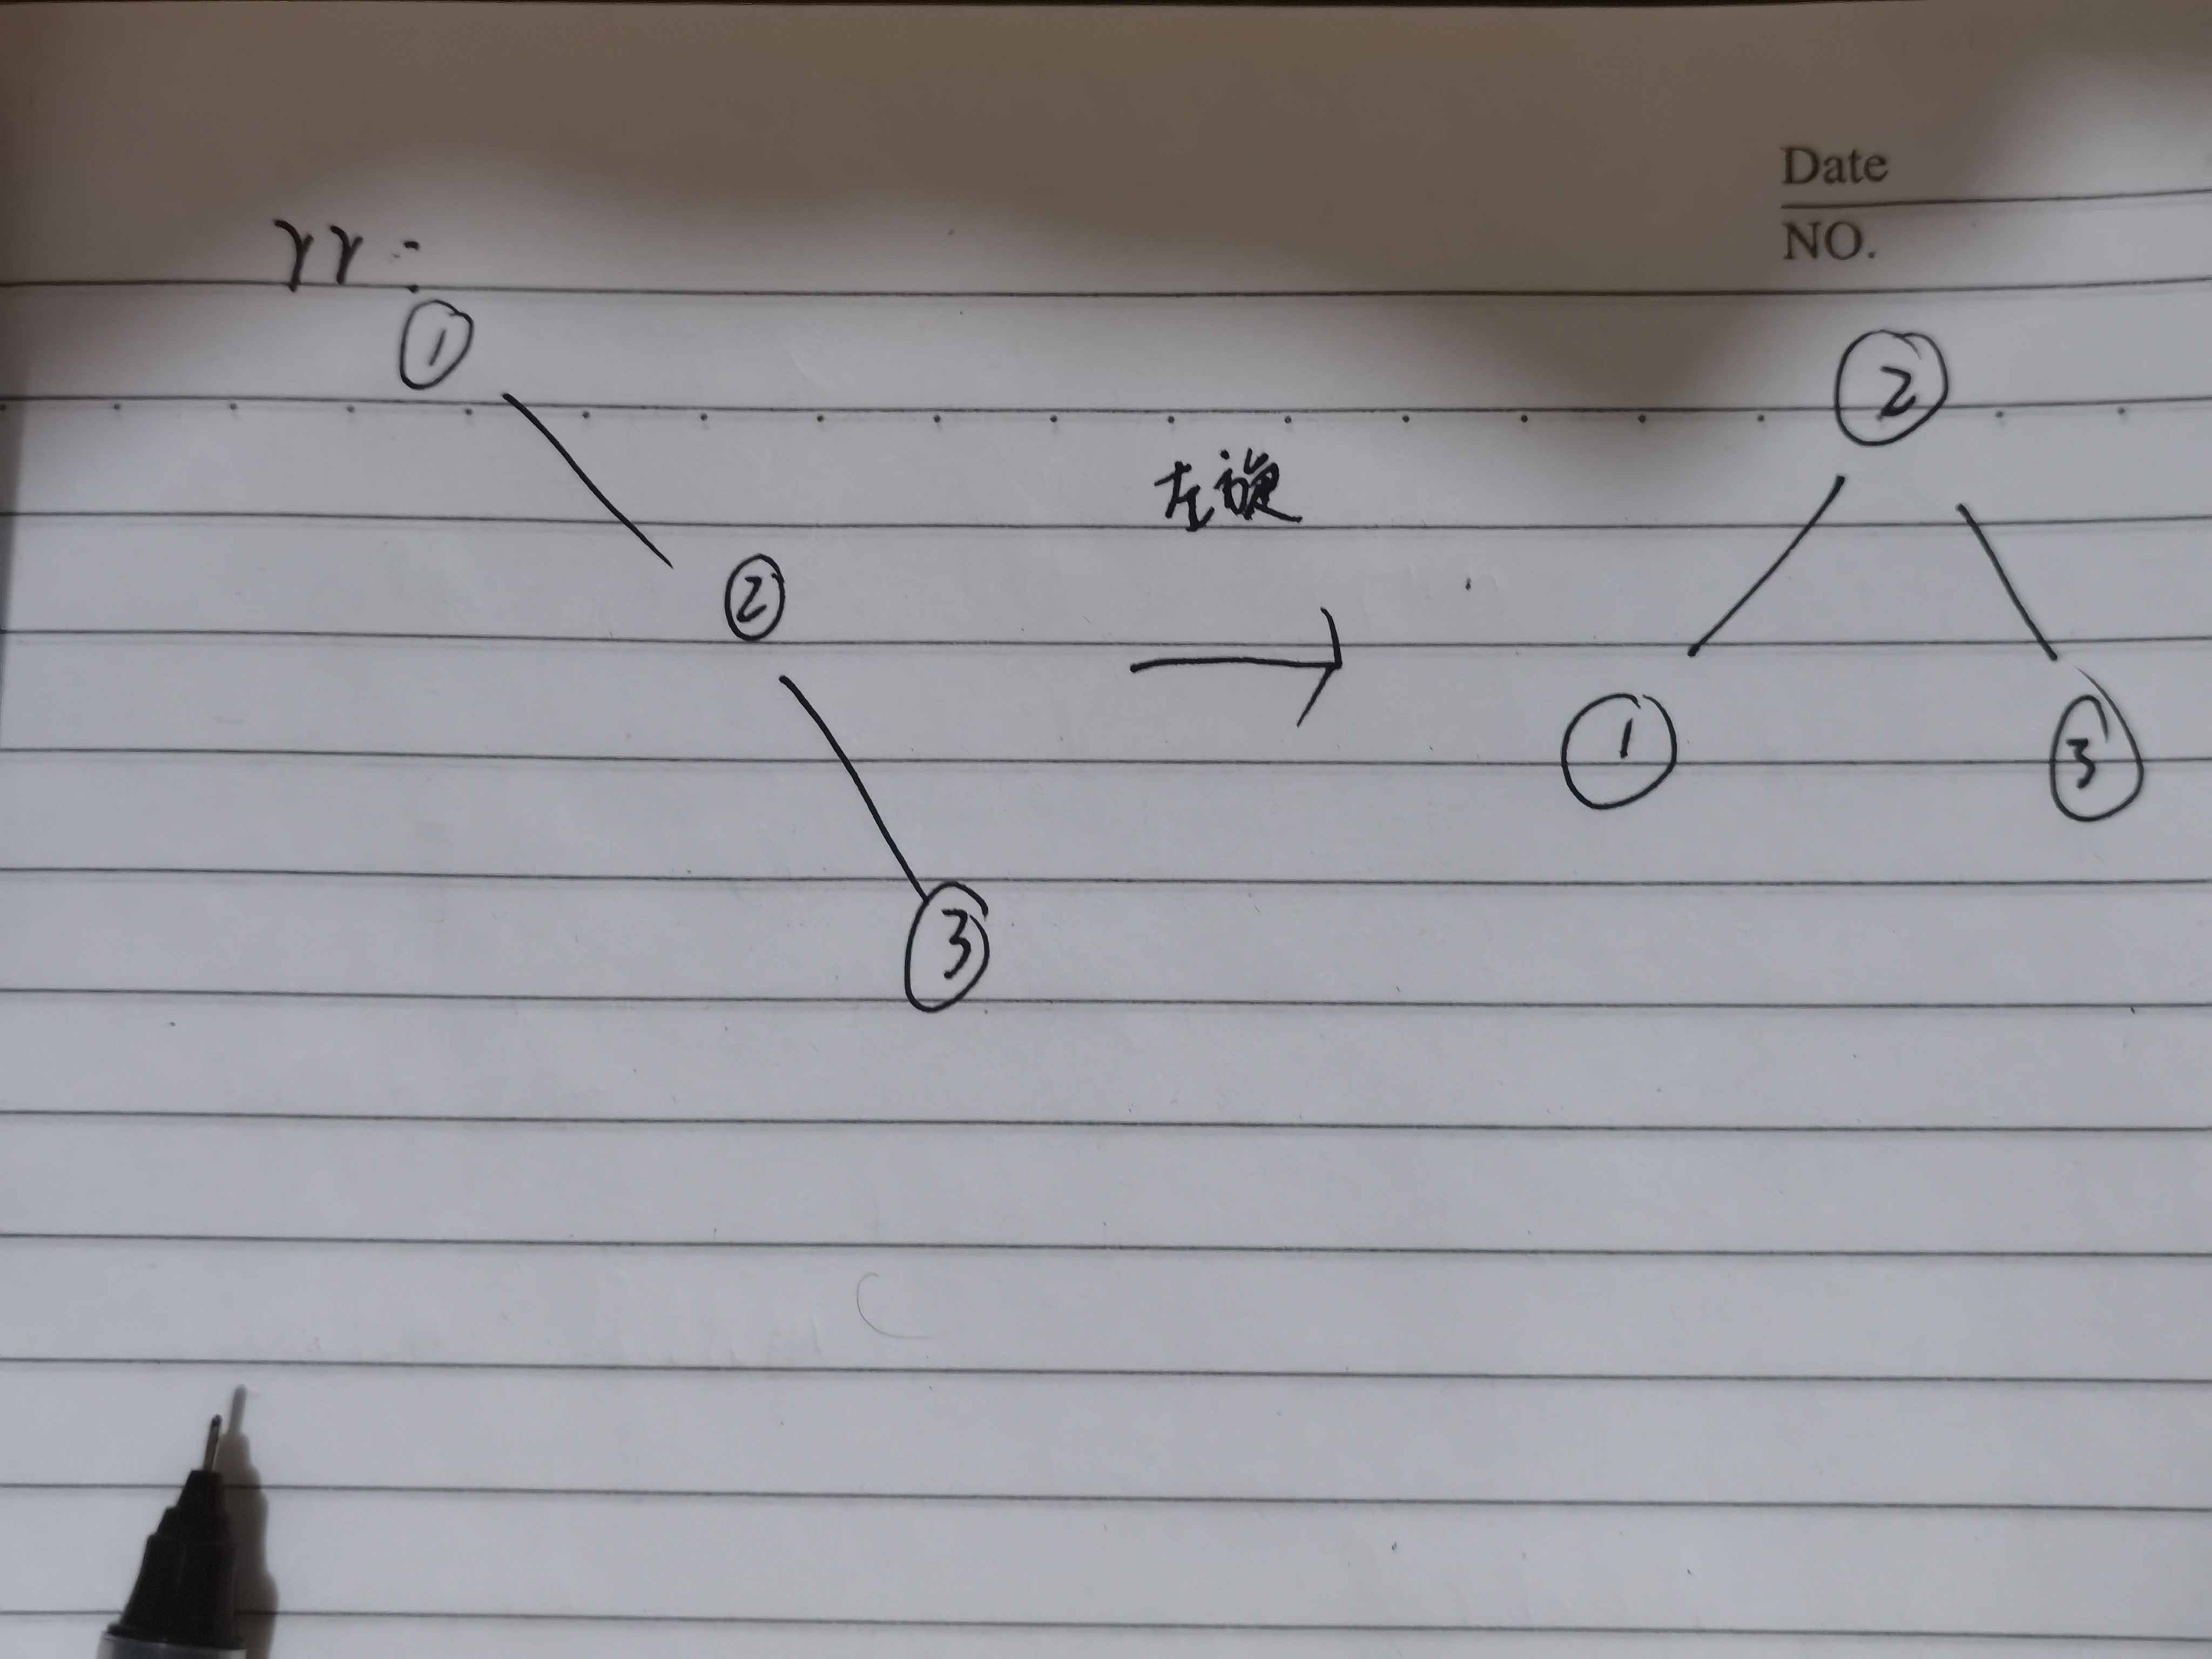 Date
NO.
rr:
1
2
3
左旋
2
1
3